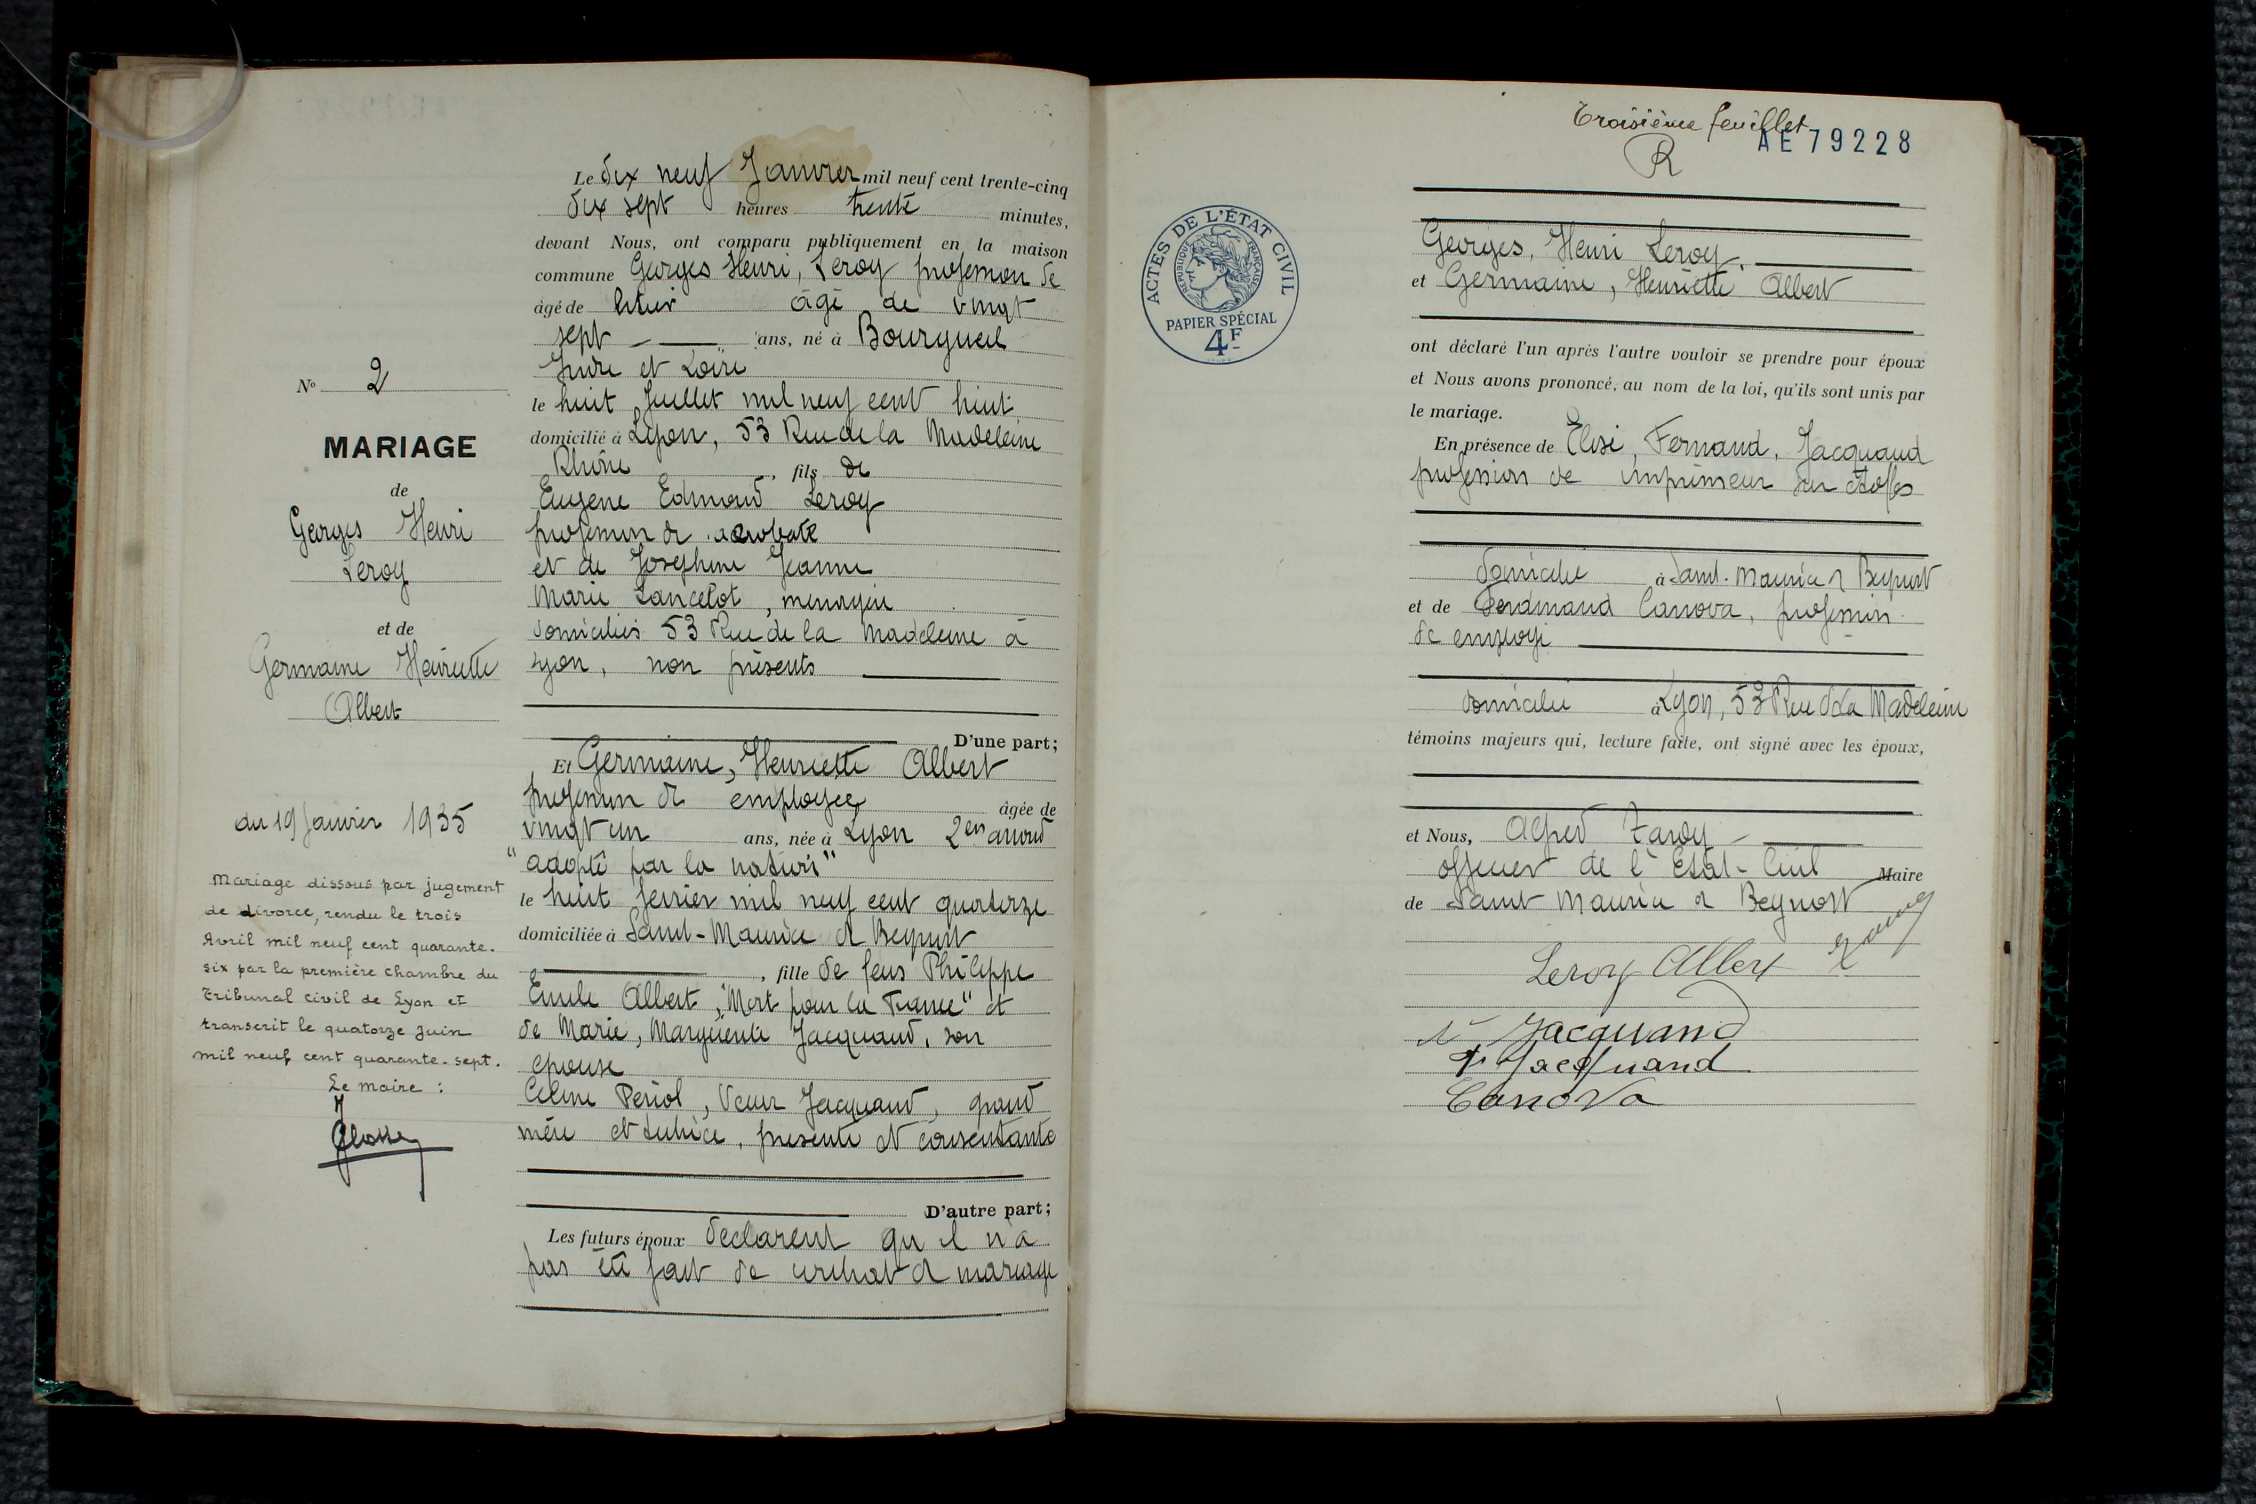 Le dix neuf Janvier mil neuf cent trente-cinq
dix sept heures trente minutes,
devant Nous, ont comparu publiquement en la maison
commune Georges Henri, Leroy profession de
âgé de âgé de vingt
sept ans, né à Bourgueil
Indre et Loire
le huit Juillet mil neuf cent huit
domicilié à Lyon, 53 Rue de la Madeleine
Rhône, fils de
Eugène Edmond Leroy
profession de acrobate
et de Joséphine Jeanne
Marie Lancelot, ménagère
domiciliés 53 Rue de la Madeleine à
Lyon, non présents
D'une part;
Et Germaine, Henriette Albert
profession de employée âgée de
vingt un ans, née à Lyon 2em arrond
"adopté par la nation"
le huit février mil neuf cent quatorze
domiciliée à Saint-Maurice de Beynost
, fille de feus Philippe
Emile Albert, "Mort pour la France" et
de Marie, Marguerite Jacquand, son
épouse
Céline Périol, Veuve Jacquand, grand
mère et tutrice, présente et consentante
D'autre part;
Les futurs époux déclarent qu'il n'a
pas été fait de contrat de mariage
No 2
MARIAGE
de
Georges Henri
Leroy
et de
Germaine Henriette
Albert
du 19 Janvier 1935
Mariage dissous par jugement
de divorce, rendu le trois
Avril mil neuf cent quarante-
six par la première chambre du
Tribunal civil de Lyon et
transcrit le quatorze juin
mil neuf cent quarante-sept.
Le maire :
Troisième feuillet
AE79228
R
ACTES DE L'ÉTAT CIVIL
RÉPUBLIQUE FRANÇAISE
PAPIER SPÉCIAL
4F
Georges, Henri Leroy
et Germaine, Henriette Albert
ont déclaré l'un après l'autre vouloir se prendre pour époux
et Nous avons prononcé, au nom de la loi, qu'ils sont unis par
le mariage.
En présence de Elisé, Fernand, Jacquand
profession de imprimeur sur étoffes
domicilié à Saint-Maurice de Beynost
et de Ferdinand Canova, profession
de employé
domicilié à Lyon, 53 Rue de la Madeleine
témoins majeurs qui, lecture faite, ont signé avec les époux,
et Nous, Alfred Tardy
officier de l'Etat-Civil Maire
de Saint Maurice de Beynost
Leroy Albert
Jacquand
Jacquand
Canova